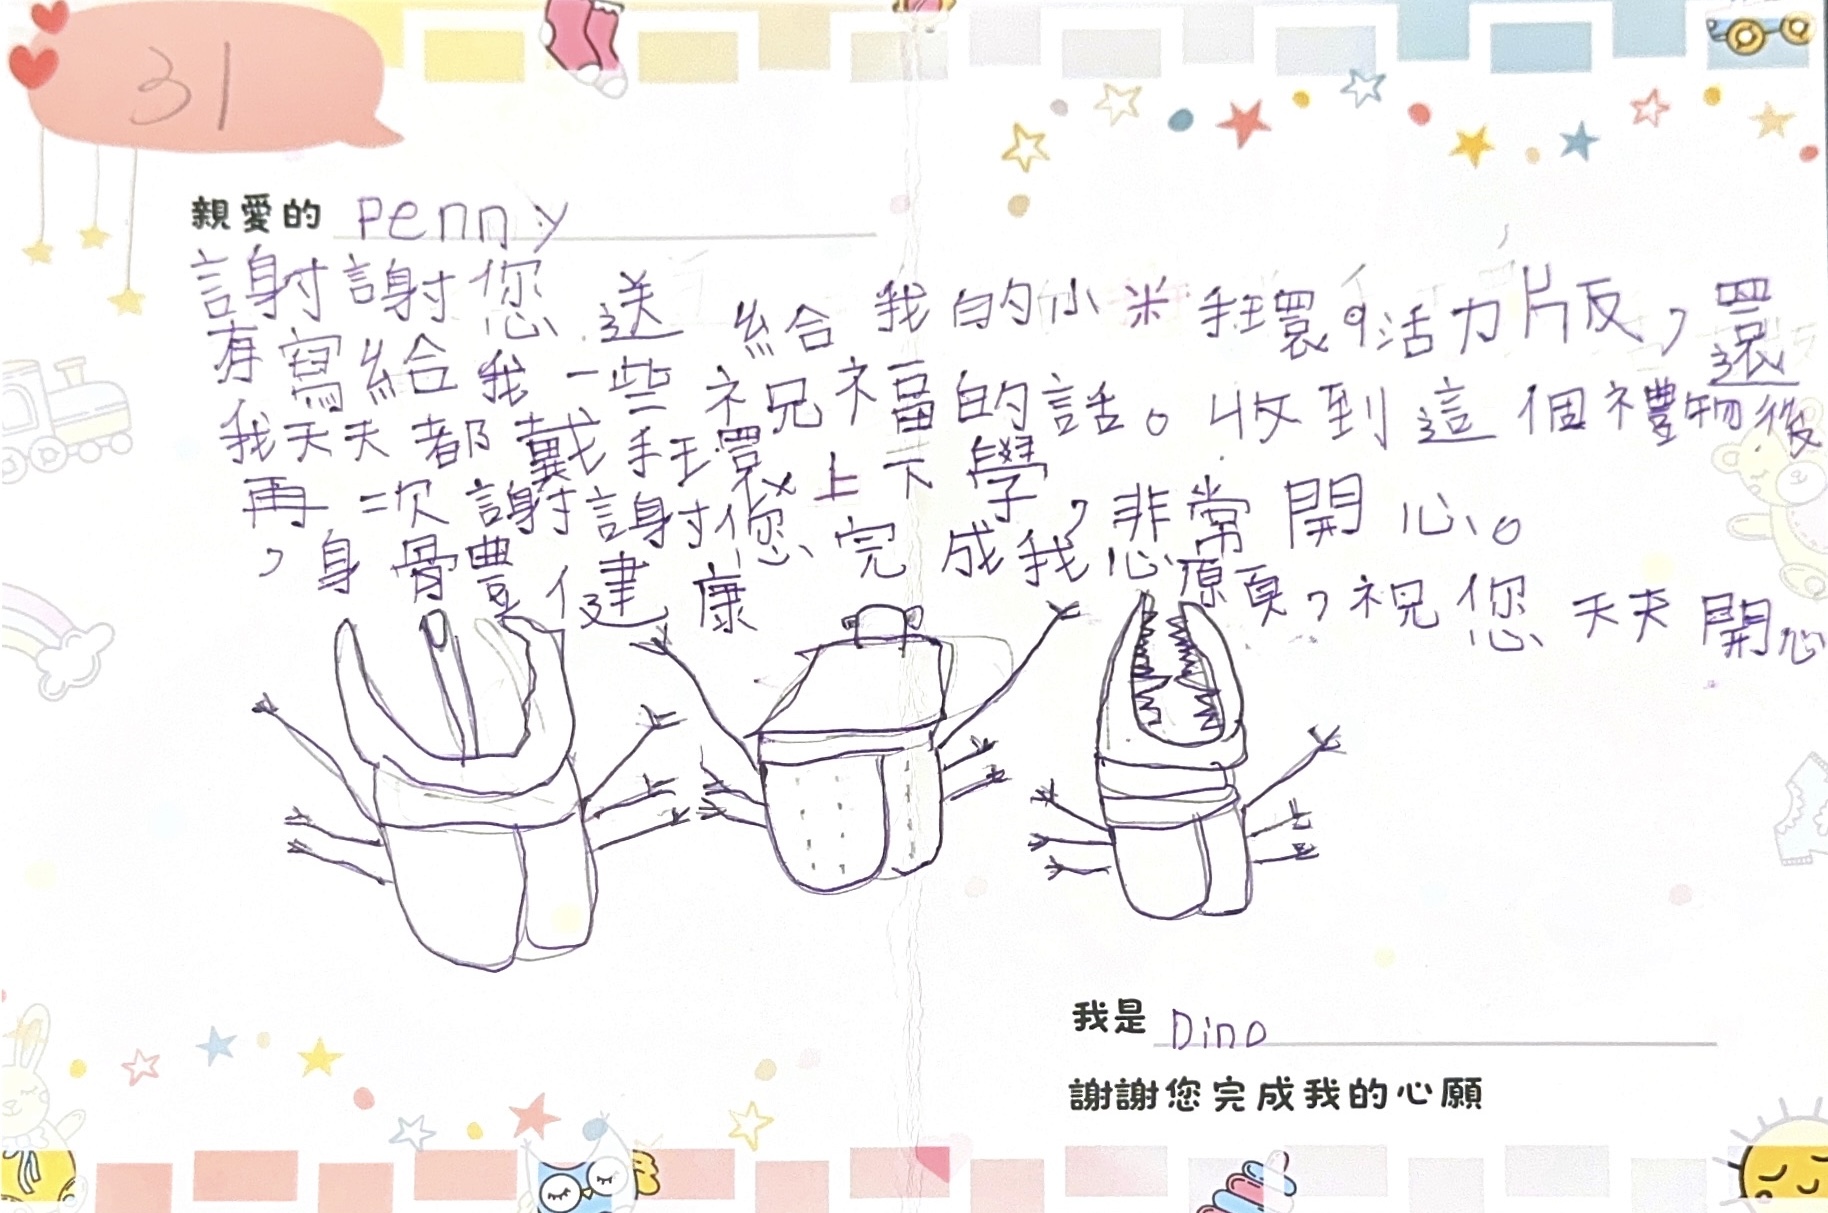 31
親愛的 Penny
謝謝您送給我的小米手環9活力版,還
有寫給我一些祝福的話。收到這個禮物後
我天天都戴手環上下學,非常開心。
再次謝謝您完成我心願,祝您天天開心
,身骨豊健康
我是 Dino
謝謝您完成我的心願